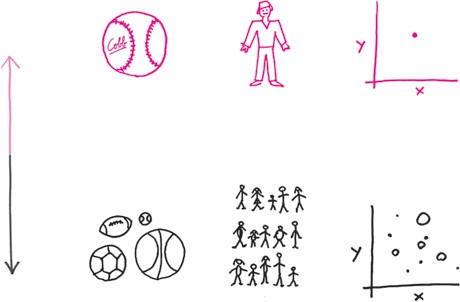 Cobb
y
x
y
x